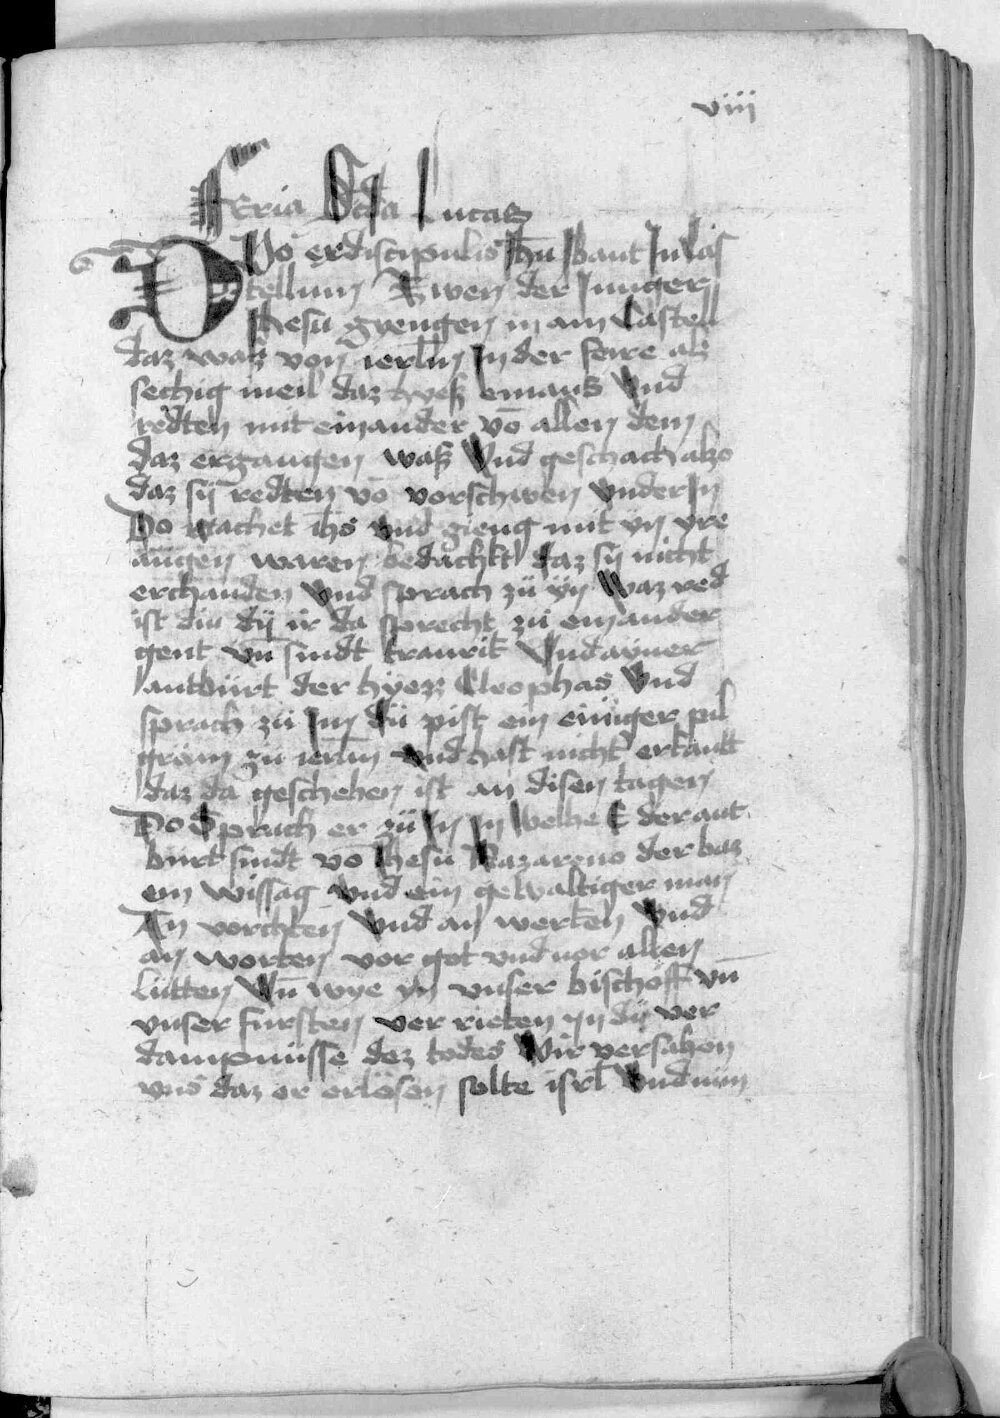 viii
Feria Scda Lucas
Dvo ex discipulis Jhu ibant In Cas
tellum Zwen der Junger
Jhesu gyengen in ain Castell
daz waz von ierlm In der feire als
sechtzig meil daz hyesz emaus Vnd
redten mit einander vō allen dem
daz ergangen wasz Vnd geschach also
daz sÿ redten vō vorschten vnder In
Do nachet ihs vnd gieng mit yn yre
augen waren bedachkt daz sÿ nicht
erchanden Vnd sprach zü yn Waz red
ist diu dÿ ir da sprecht zü einander
gent vn̄ sindt traurit Vnd ayner
antbürt der hÿezz Cleophas Vnd
sprach zü Im dü pist ein einiger pil
gräm zü ierlm vnd hast nicht erkantt
daz da geschehen ist an disen tagen
Do Sprach er zü In In Welhē Er der ant
bürt sindt vō Jhesu Nazareno der baz
ein wissag vnd ein gewaltiger man
An vorchten Vnd an werken Vnd
an worten vor got vnd vor allen
lütten Vn̄ wye yn vnser bischoff vn̄
vnser fursten ver rieten yn dÿ ver
dampnüsse dez todes Wir versahen
vns daz er erlösen solte isrl Vnd nun